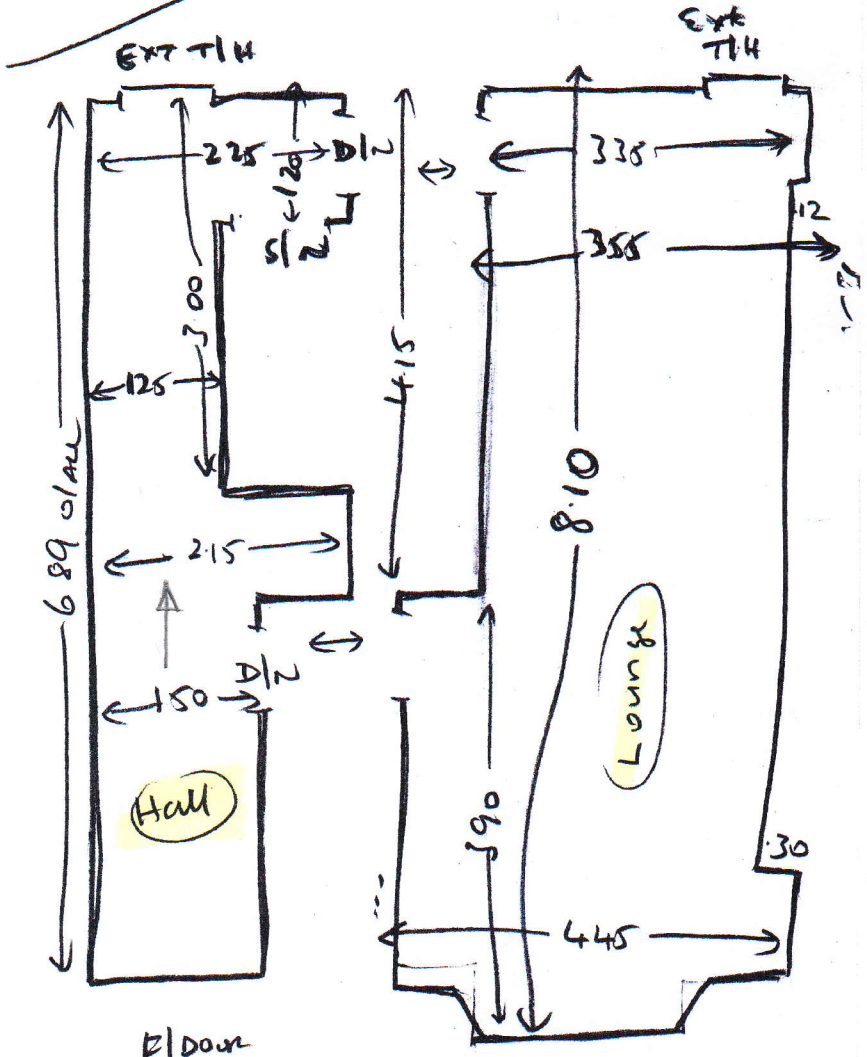 EXT T/H
Ext
T/H
225
D/N
120
S/N
335
.12
355
3.00
125
4.15
689 o/all
8.10
2.15
D/N
150
Hall
Lounge
390
.30
445
E/Door